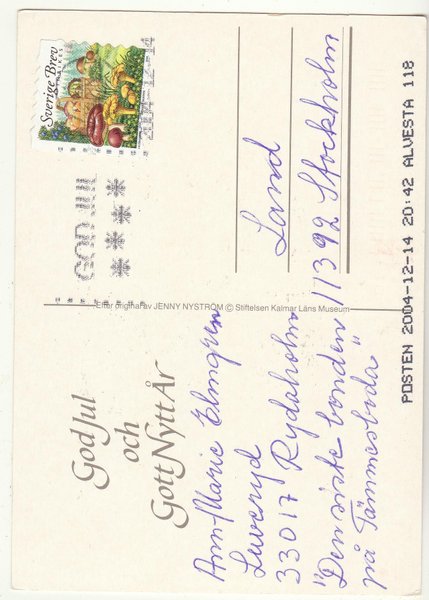 Sverige Brev
GOD JUL
God Jul
och
Gott Nytt År
Ann-Marie Elmgren
33017 Rydaholm
"Den siste bonden
på Tämmesboda"
Efter original av JENNY NYSTRÖM © Stiftelsen Kalmar Läns Museum
Land
11392 Stockholm
POSTEN 2004-12-14 20:42 ALVESTA 118